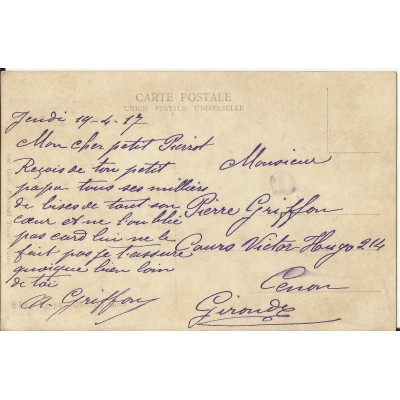 CARTE POSTALE
UNION POSTALE UNIVERSELLE
Jeudi 19-4-17
Mon cher petit Pierrot
Reçois de ton petit
papa tous ses milliers
de bises de tout son
cœur et ne l'oublie
pas card lui ne le
fait pas je t'assure
quoique bien loin
de toi
A. Griffon
Monsieur
Pierre Griffon
Cours Victor Hugo 214
Cenon
Gironde